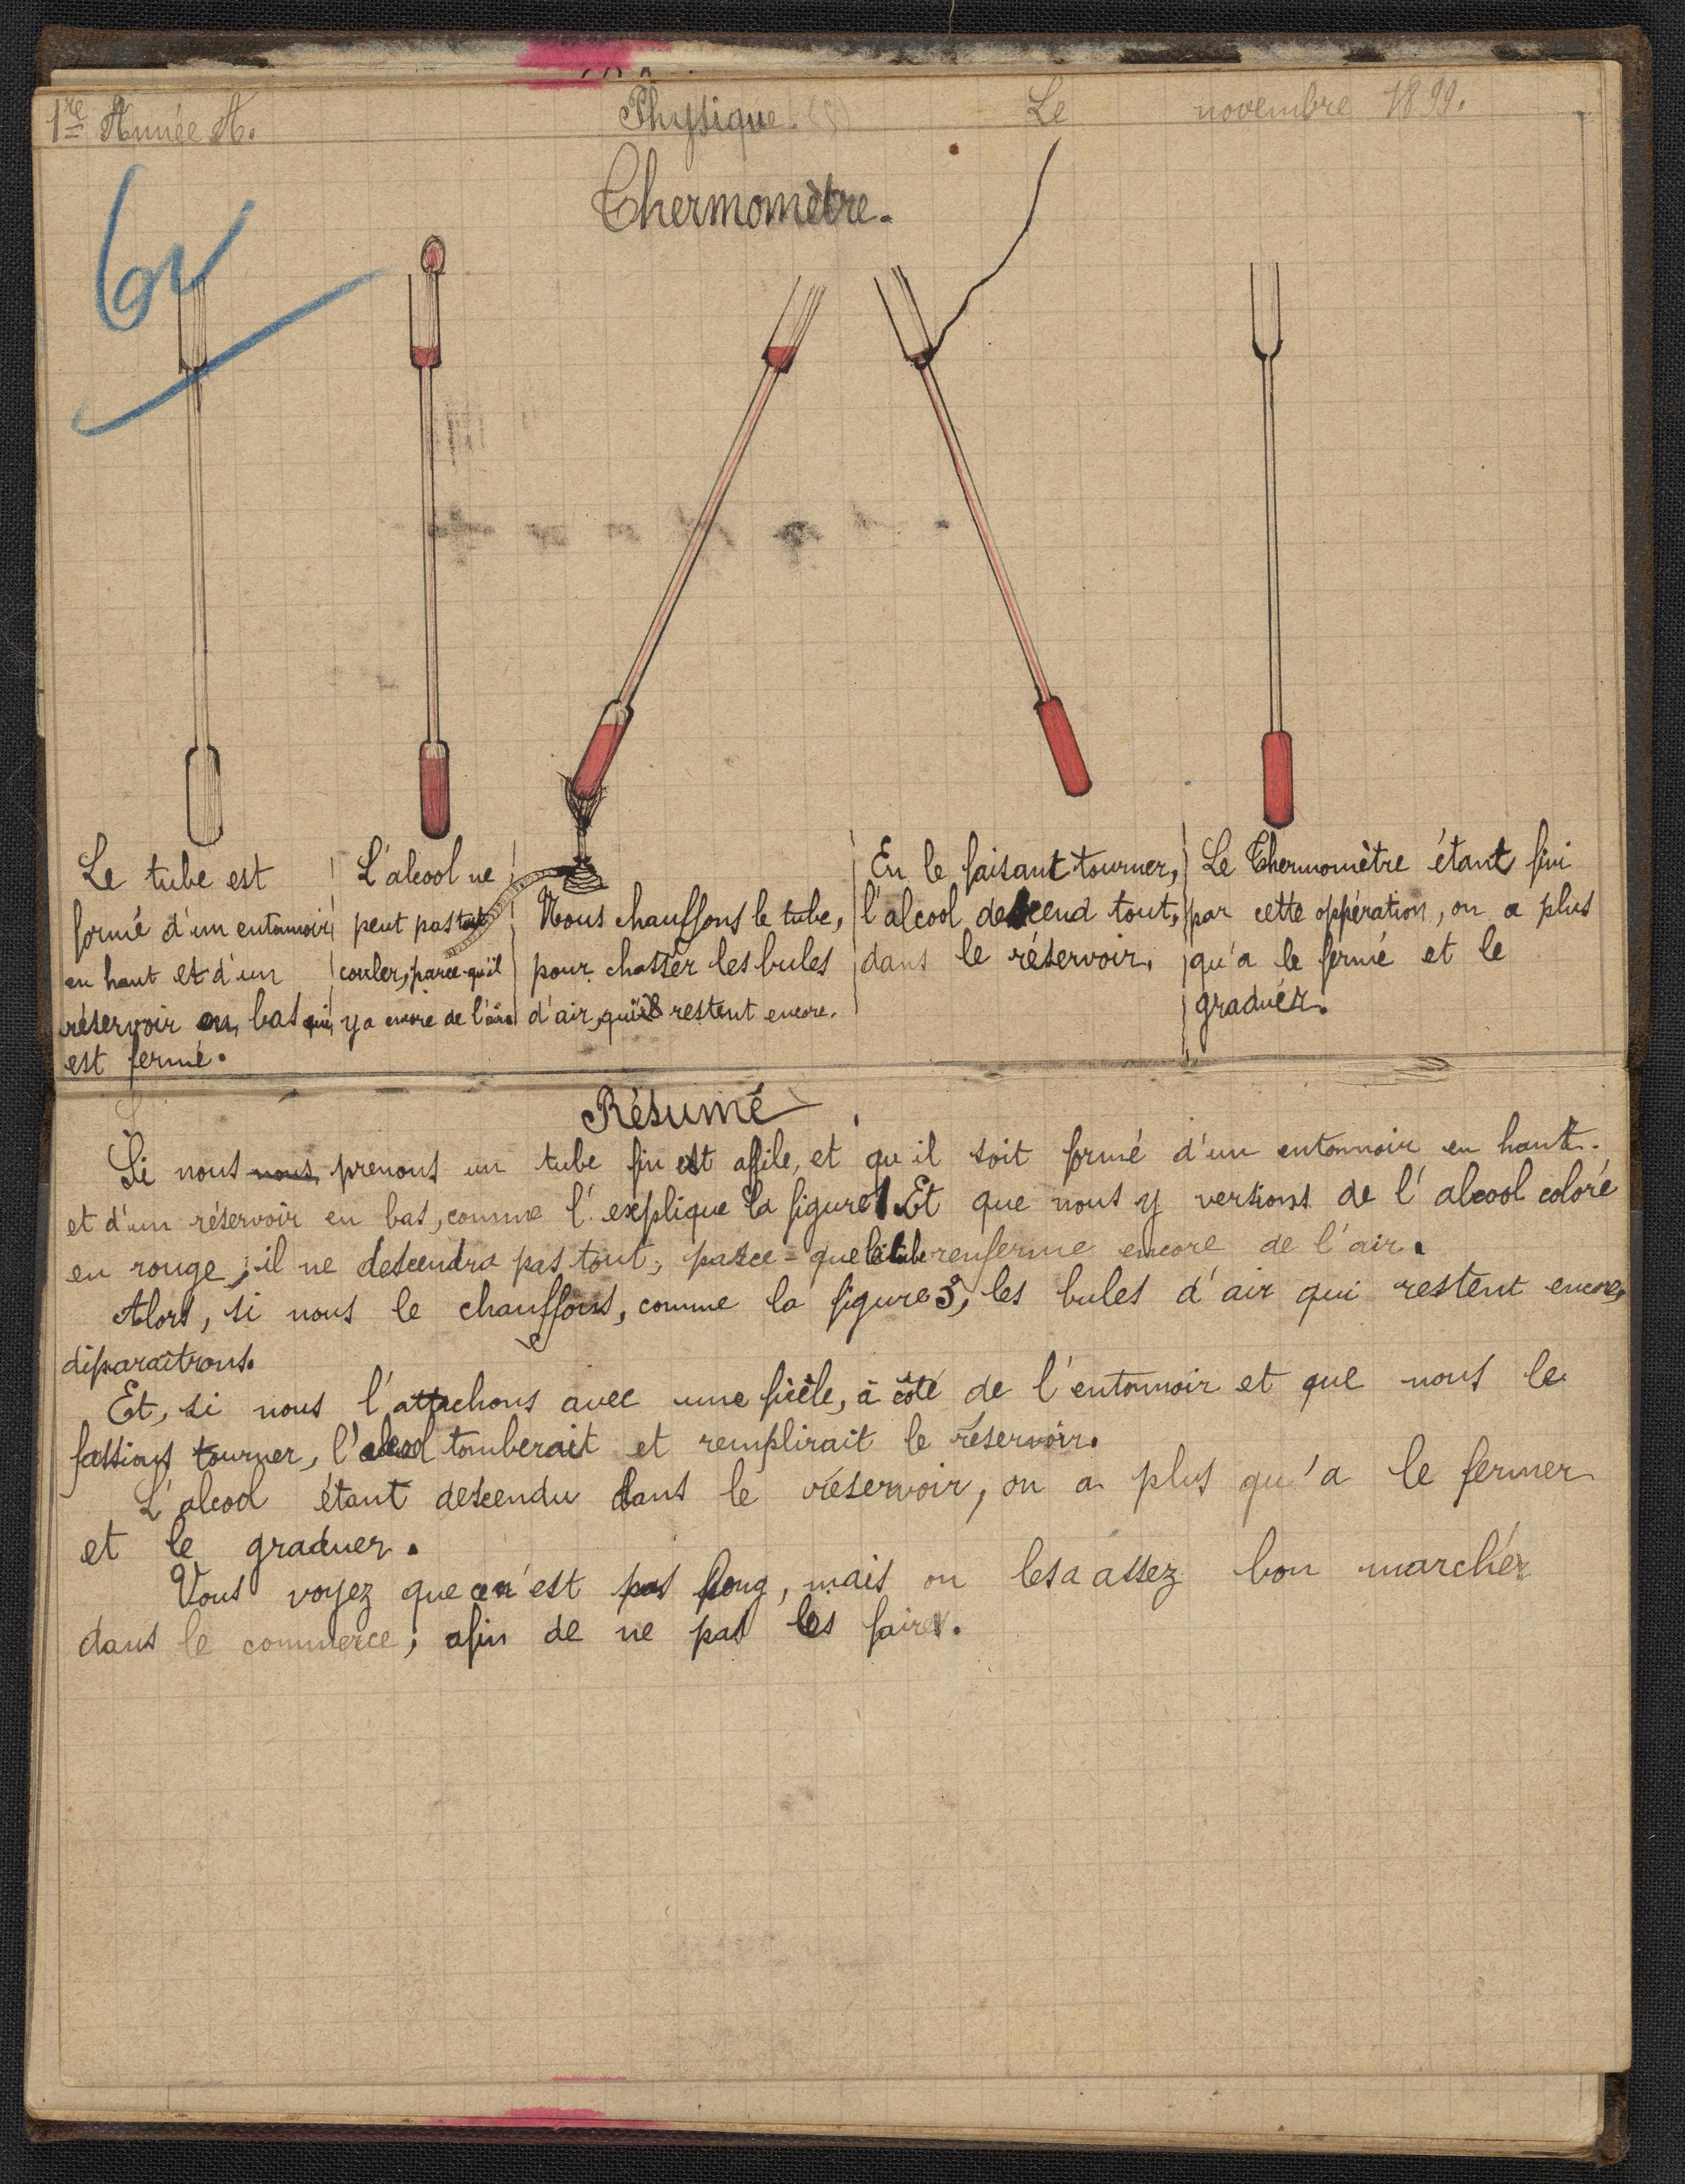 1re Année A.
Physique. (5)
Le novembre 1899.
Thermomètre.
Le tube est
formé d'un entonnoir
en haut et d'un
réservoir en bas qui
est fermé.
L'alcool ne
peut pas tout
couler, parce-qu'il
y a encore de l'air
Nous chauffons le tube,
pour chasser les bules
d'air, qui restent encore.
En le faisant tourner,
l'alcool descend tout,
dans le réservoir.
Le Thermomètre étant fini
par cette oppération, on a plus
qu'a le fermé et le
graduér.
Résumé
Si nous nous prenons un tube fin et affile, et qu'il soit formé d'un entonnoir en haut.
et d'un réservoir en bas, comme l'explique la figure 1. Et que nous y versions de l'alcool coloré
en rouge, il ne descendra pas tout, parce-que le tube renferme encore de l'air.
Alors, si nous le chauffons, comme la figure 3, les bules d'air qui restent encore,
diparaîtrons.
Et, si nous l'attachons avec une ficèle, à côté de l'entonnoir et que nous le
fassions tourner, l'alcool tomberait et remplirait le réservoir.
L'alcool étant descendu dans le réservoir, on a plus qu'a le fermer
et le graduer.
Vous voyez que ce n'est pas long, mais on les a assez bon marchér
dans le commerce; afin de ne pas les faire.